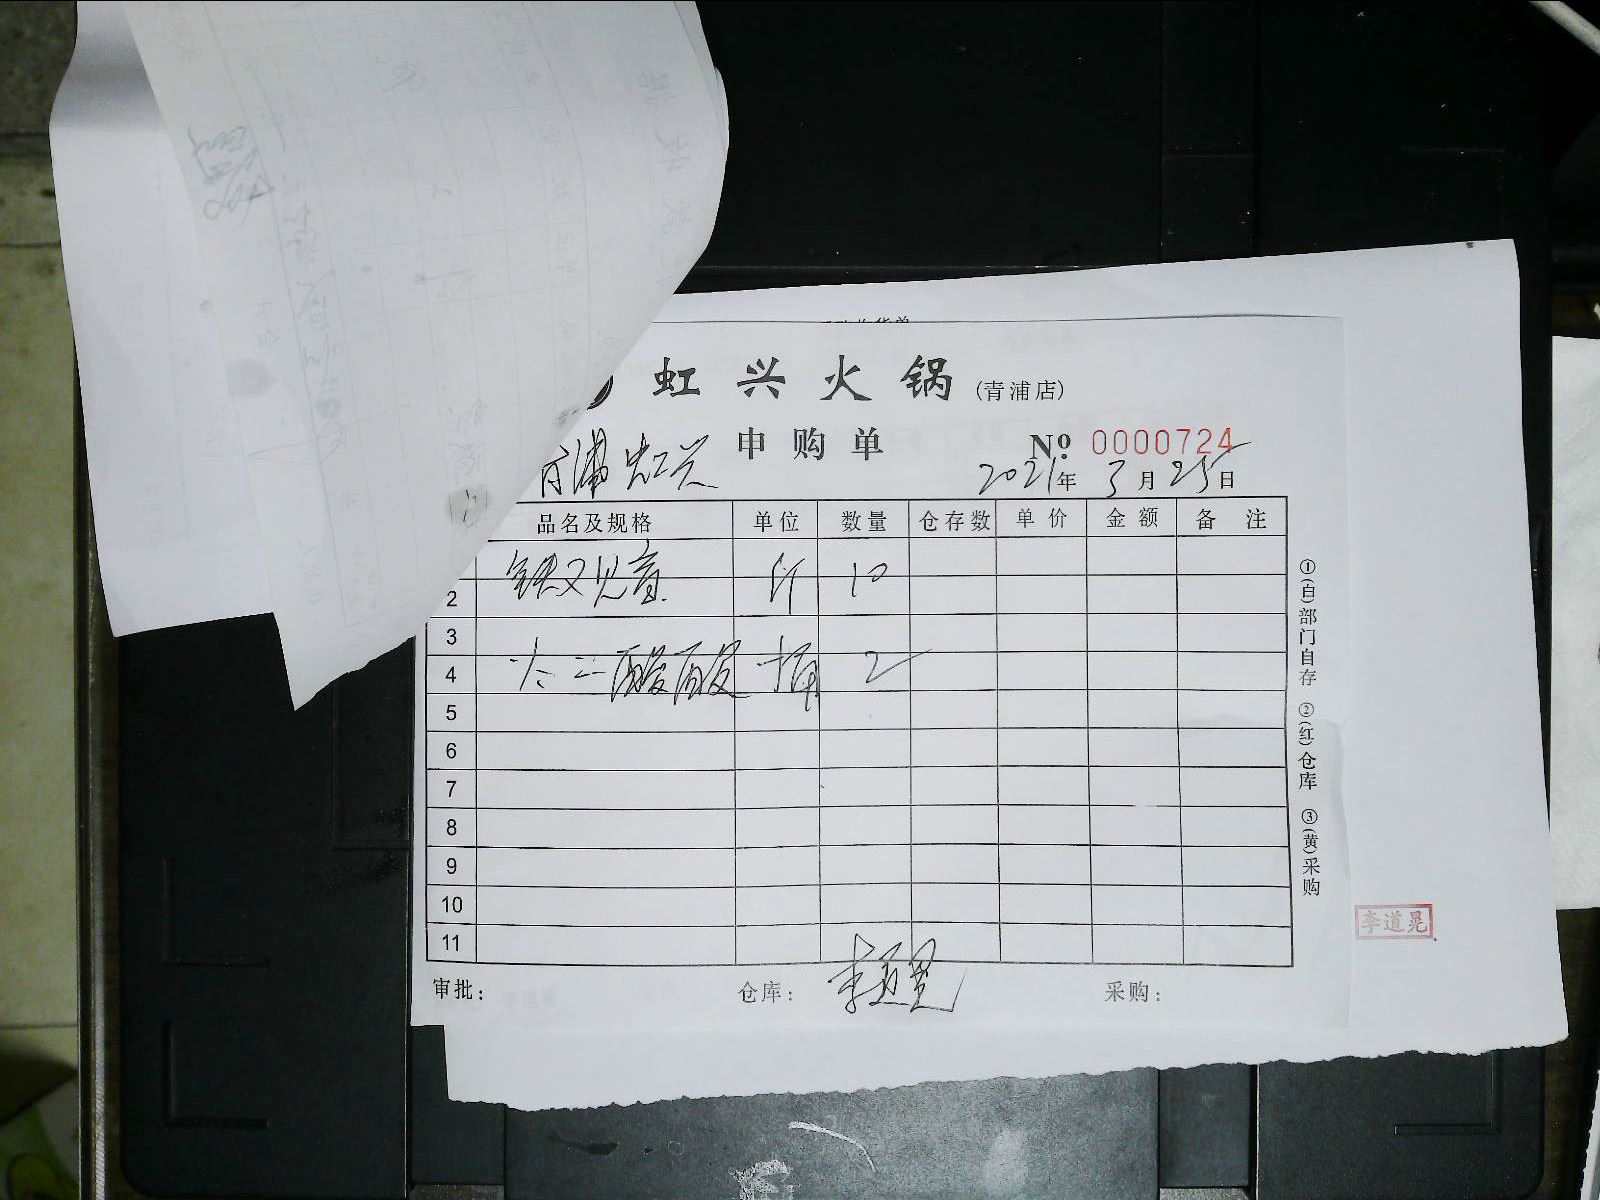 虹兴火锅 (青浦店)
申购单 № 0000724
青浦虹兴 2021年3月25日
品名及规格 单位 数量 仓存数 单价 金额 备注
铁观音 斤 10
2
3
4 桶 2
5
6
7
8
9
10
11
审批： 仓库：李道晃 采购：
①(白)部门自存 ②(红)仓库 ③(黄)采购
李道晃